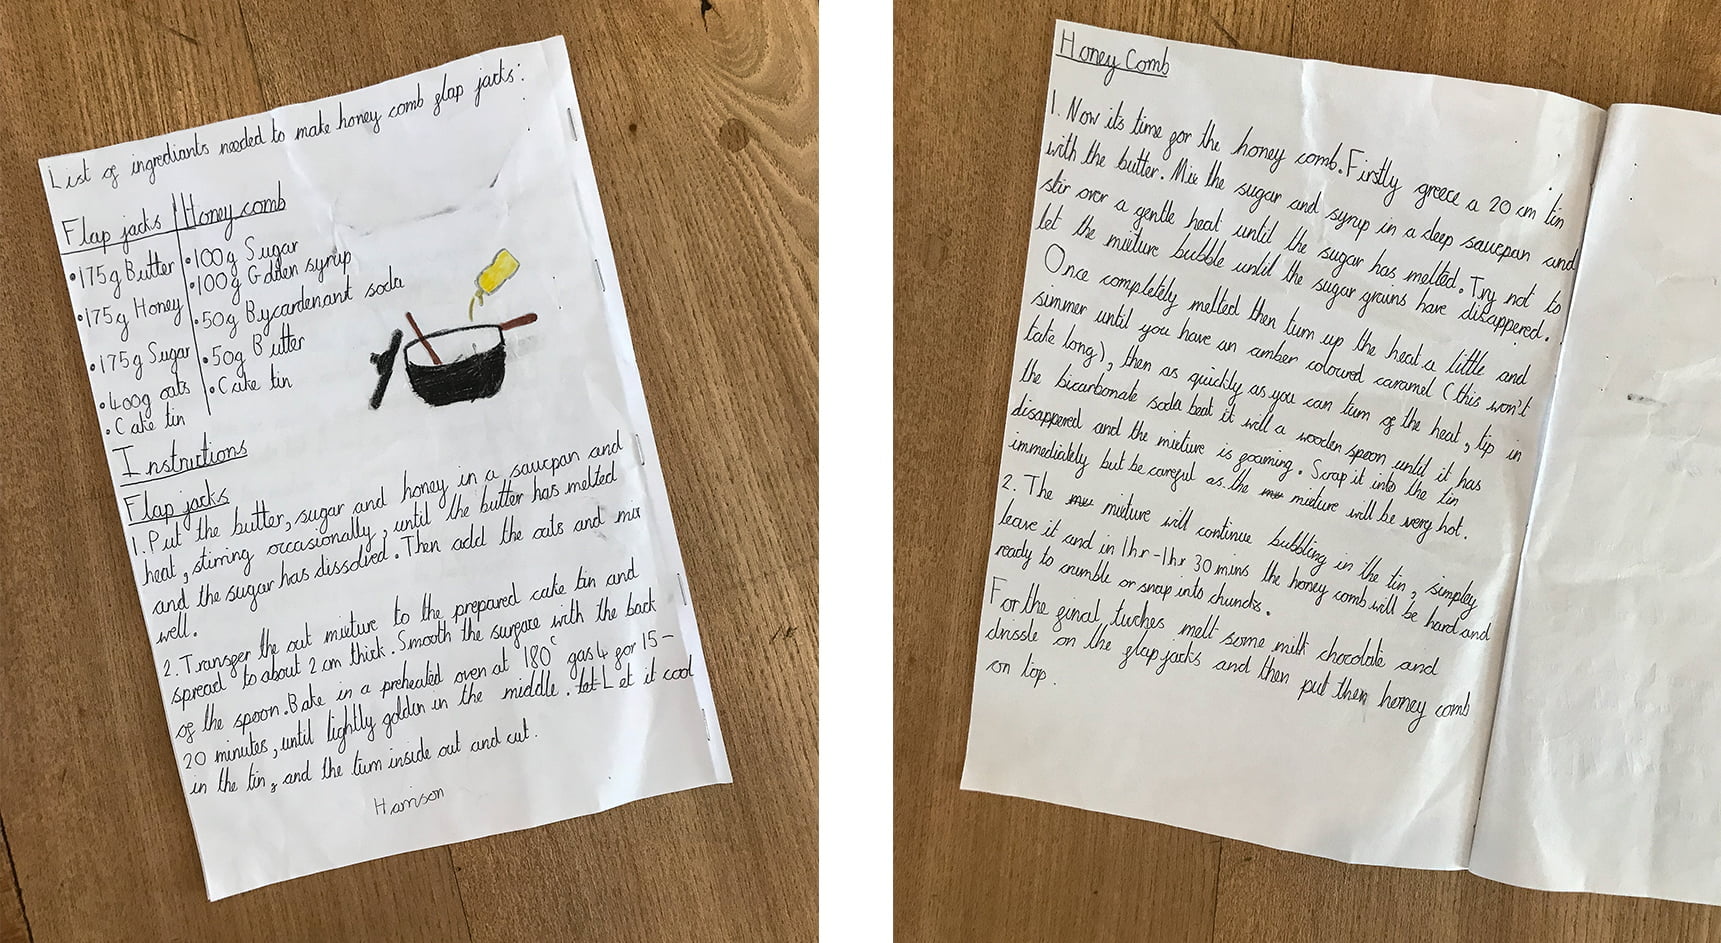 List of ingrediants needed to make honey comb flap jacks:
Flap jacks
Honey comb
•175g Butter
•175g Honey
•175g Sugar
•400g oats
•Cake tin
•100g Sugar
•100g Golden syrup
•50g Bycardenant soda
•50g Butter
•Cake tin
Instructions
Flap jacks
1. Put the butter, sugar and honey in a saucpan and
heat, stirring occasionally, until the butter has melted
and the sugar has dissolved. Then add the oats and mix
well.
2. Transfer the out mixture to the prepared cake tin and
spread to about 2 cm thick. Smooth the surface with the back
of the spoon. Bake in a preheated oven at 180°C gas 4 for 15-
20 minutes, until lightly golden in the middle. let Let it cool
in the tin, and the turn inside out and cut.
Harrison
Honey Comb
1. Now its time for the honey comb. Firstly greece a 20 cm tin
with the butter. Mix the sugar and syrup in a deep saucpan and
stir over a gentle heat until the sugar has melted. Try not to
let the mixture bubble until the sugar grains have disappered.
Once completely melted then turn up the heat a little and
simmer until you have an amber coloured caramel (this won't
take long), then as quickly as you can turn of the heat, tip in
the bicarbonate soda beat it will a wooden spoon until it has
disappered and the mixture is foaming. Scrap it into the tin
immediately but be careful as the mixture will be very hot.
2. The mixture will continue bubbling in the tin, simpley
leave it and in 1hr-1hr 30 mins the honey comb will be hard and
ready to crumble or snap into chuncks.
For the final tuches melt some milk chocolate and
drissle on the flap jacks and then put then honey comb
on top.